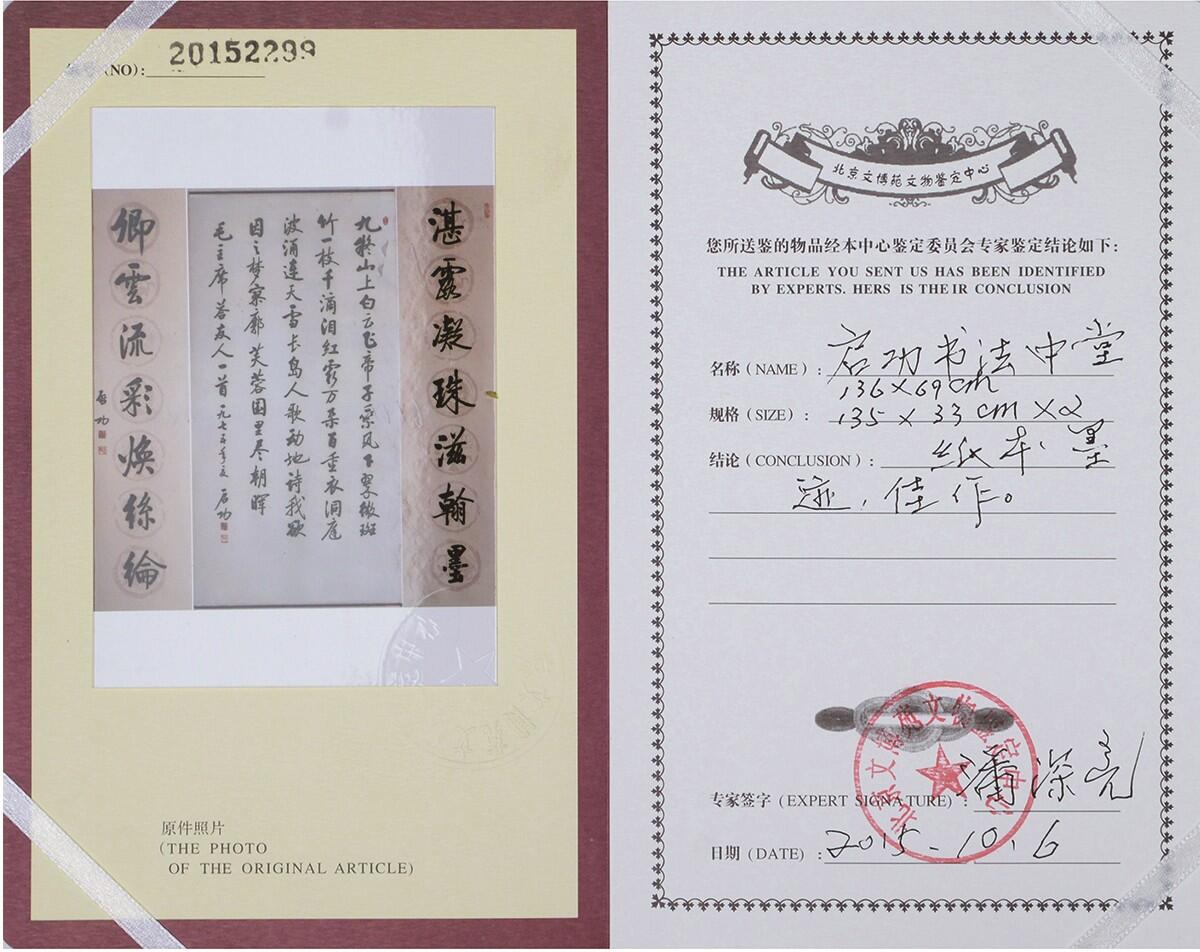 (NO):
20152299
湛露凝珠滋翰墨
九疑山上白云飞帝子乘风下翠微斑
竹一枝千滴泪红霞万朵百重衣洞庭
波涌连天雪长岛人歌动地诗我欲
因之梦寥廓芙蓉国里尽朝晖
毛主席答友人一首一九七五年夏 启功
卿雲流彩焕絲綸
启功
原件照片
(THE PHOTO
OF THE ORIGINAL ARTICLE)
北京文博苑文物鉴定中心
您所送鉴的物品经本中心鉴定委员会专家鉴定结论如下:
THE ARTICLE YOU SENT US HAS BEEN IDENTIFIED
BY EXPERTS. HERS IS THE IR CONCLUSION
名称 (NAME) : 启功书法中堂
136×69cm
规格 (SIZE) : 135×33cm×2
结论 (CONCLUSION) : 纸本墨
迹,佳作。
北京文博苑文物鉴定中心
专家签字 (EXPERT SIGNATURE) : 潘深亮
日期 (DATE) : 2015.10.6